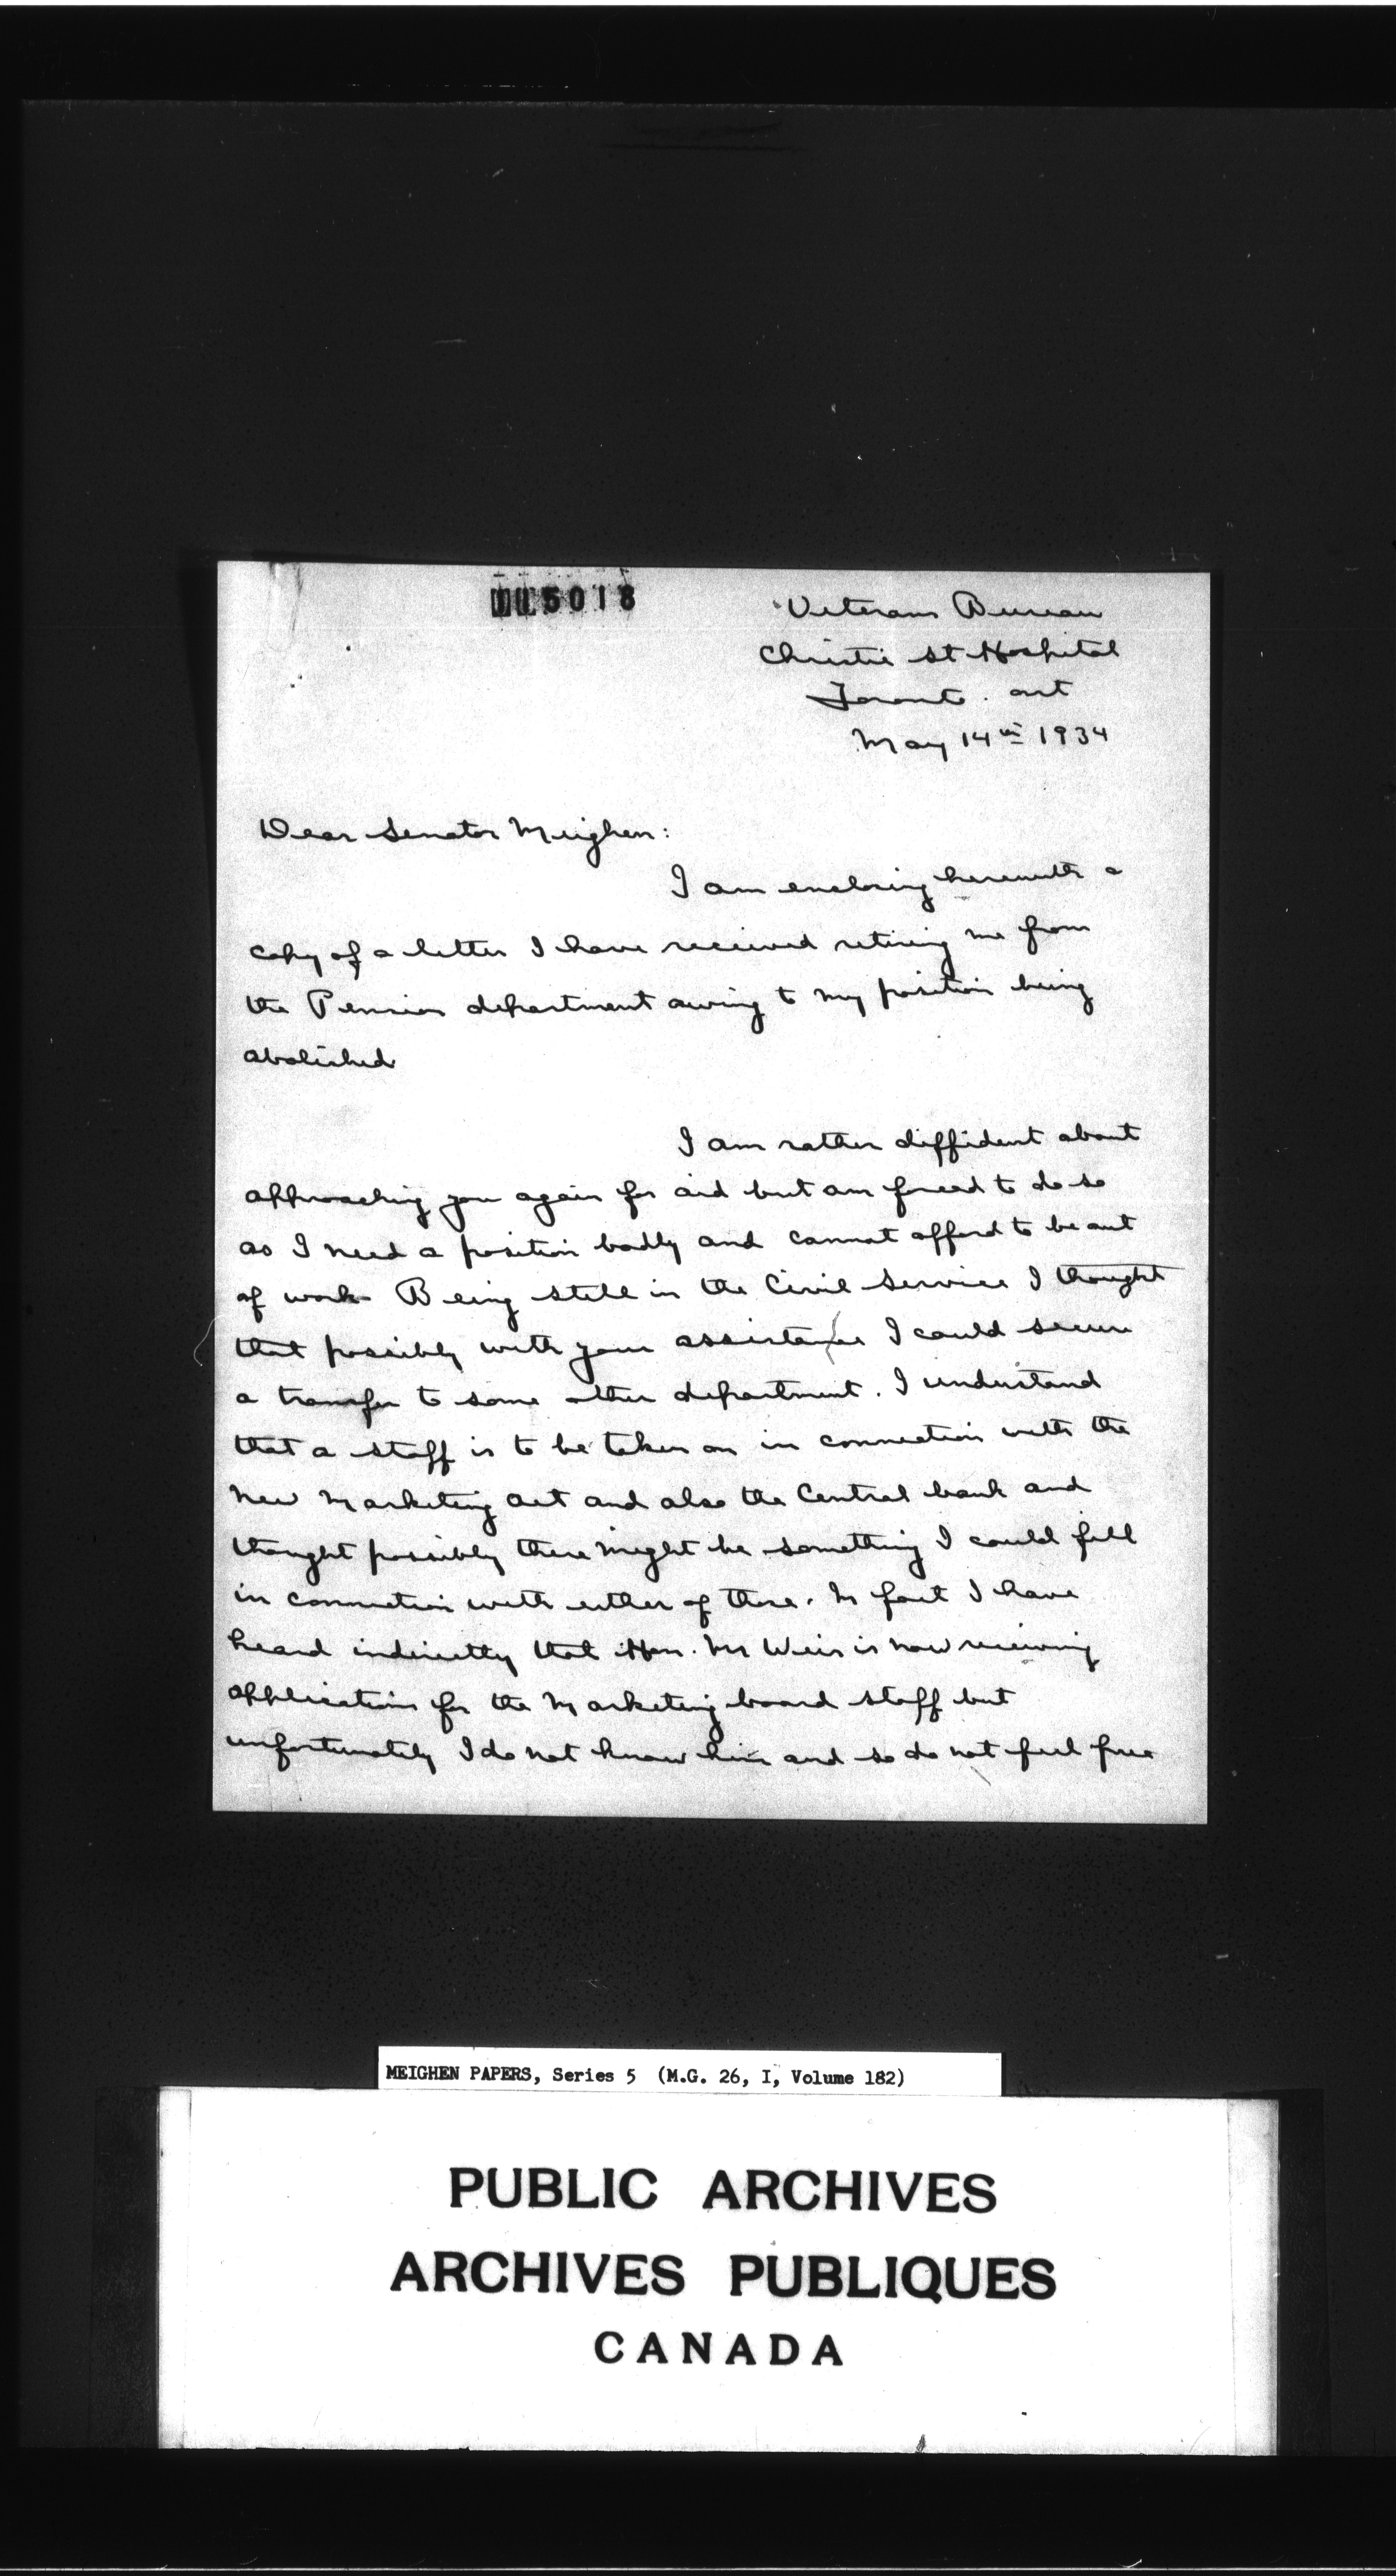 5018
Veterans Bureau
Christie St Hospital
Toronto. Ont
May 14th 1934
Dear Senator Meighen:
I am enclosing herewith a
copy of a letter I have received retiring me from
the Pension department owing to my position being
abolished
I am rather diffident about
approaching you again for aid but am forced to do so
as I need a position badly and cannot afford to be out
of work Being still in the Civil Service I thought
that possibly with your assistance I could secure
a transfer to some other department. I understand
that a staff is to be taken on in connection with the
New Marketing Act and also the Central bank and
thought possibly there might be something I could fill
in connection with either of these. In fact I have
heard indirectly that Hon. Mr Weir is now receiving
applications for the Marketing board staff but
unfortunately I do not know him and so do not feel free
MEIGHEN PAPERS, Series 5 (M.G. 26, I, Volume 182)
PUBLIC ARCHIVES
ARCHIVES PUBLIQUES
CANADA